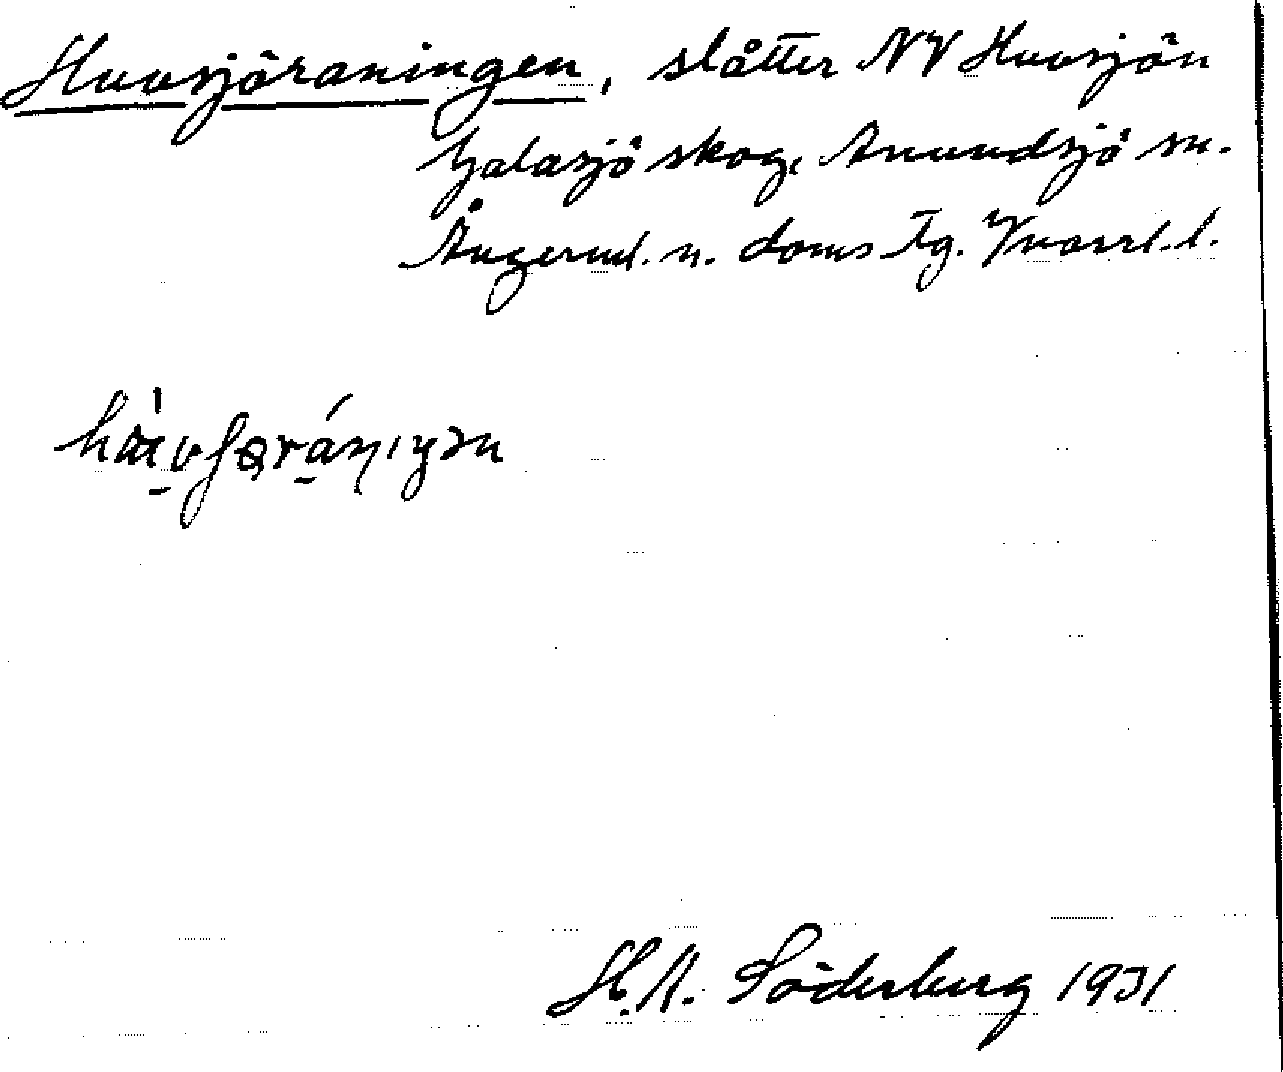 Huvsjöraningen, slåtter NV Huvsjön
Galasjö skog, Anundsjö sn.
Ångerml. n. doms Tg. Västernorrl. l.
H. N. Söderberg 1931